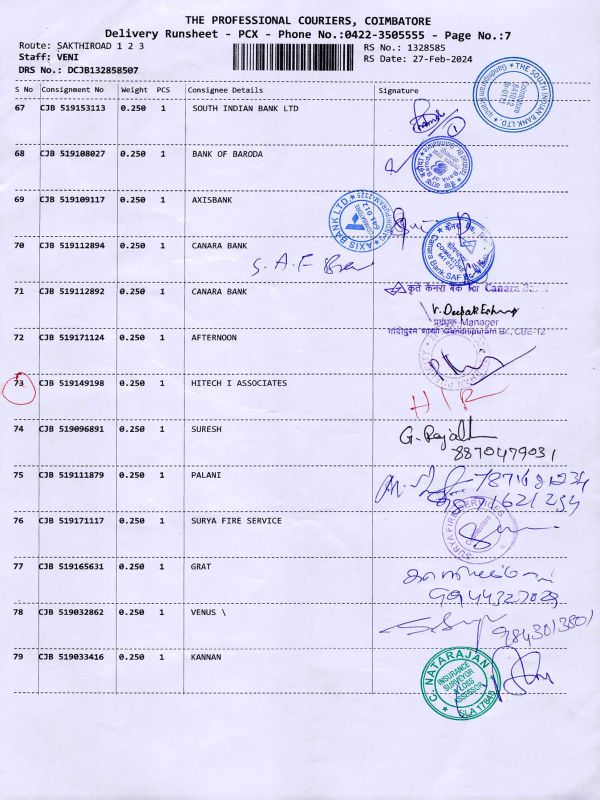 THE PROFESSIONAL COURIERS, COIMBATORE
Delivery Runsheet - PCX - Phone No.:0422-3505555 - Page No.:7
Route: SAKTHIROAD 1 2 3
RS No.: 1328585
Staff: VENI
RS Date: 27-Feb-2024
DRS No.: DCJB132858507
S No Consignment No Weight PCS Consignee Details Signature
67 CJB 519153113 0.250 1 SOUTH INDIAN BANK LTD
THE SOUTH INDIAN BANK LTD.
Coimbatore
641012
68 CJB 519108027 0.250 1 BANK OF BARODA
Bank of Baroda
69 CJB 519109117 0.250 1 AXISBANK
AXIS BANK LTD
641 012
70 CJB 519112894 0.250 1 CANARA BANK
S.A.F
केनरा बैंक
Canara Bank, SAF
71 CJB 519112892 0.250 1 CANARA BANK
कृते केनरा बैंक for Canara
V. Deepak
प्रबंधक Manager
गांधीपुरम शाखा Gandhipuram Br., CBE-12
72 CJB 519171124 0.250 1 AFTERNOON
73 CJB 519149198 0.250 1 HITECH I ASSOCIATES
HIR
74 CJB 519096891 0.250 1 SURESH
G. Rajal
8870479031
75 CJB 519111879 0.250 1 PALANI
9871621234
76 CJB 519171117 0.250 1 SURYA FIRE SERVICE
SURYA FIRE SERVICES
77 CJB 519165631 0.250 1 GRAT
9944327029
78 CJB 519032862 0.250 1 VENUS \
9843013801
79 CJB 519033416 0.250 1 KANNAN
C. NATARAJAN
INSURANCE
SURVEYOR
& LOSS
ASSESSOR